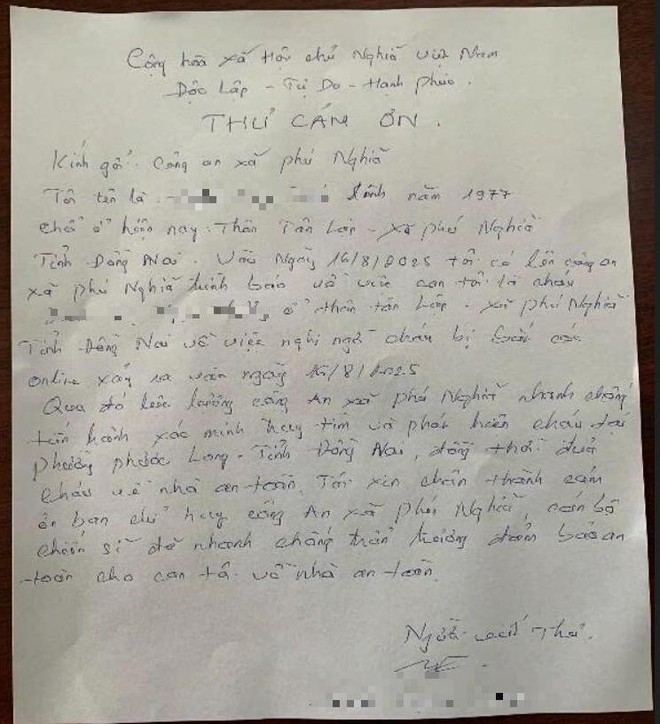 Cộng hòa xã Hội chủ Nghĩa việt Nam
Độc Lập - Tự Do - Hạnh Phúc.
THƯ CÁM ƠN.
Kính gởi: Công an xã phú Nghĩa
Tôi tên là: Sinh năm 1977
chổ ở hiện nay: Thôn Tân Lập - xã phú Nghĩa
Tỉnh Đồng Nai. Vào Ngày 16/8/2025 tôi có lên công an
xã phú Nghĩa trình báo về việc con tôi là cháu
ở thôn tân Lập - xã phú Nghĩa
Tỉnh Đồng Nai về việc nghi ngờ cháu bị bắt cóc
online xảy ra vào ngày 16/8/2025
Qua đó lực lượng công An xã phú Nghĩa nhanh chóng
tiến hành xác minh truy tìm và phát hiện cháu tại
phường phước Long - Tỉnh Đồng Nai, đồng thời đưa
cháu về nhà an toàn. Tôi xin chân thành cám
ơn ban chỉ huy công An xã phú Nghĩa, cán bộ
chiến sĩ đã nhanh chóng khẩn trương đảm bảo an
toàn cho con tôi về nhà an toàn.
Người viết Thư.